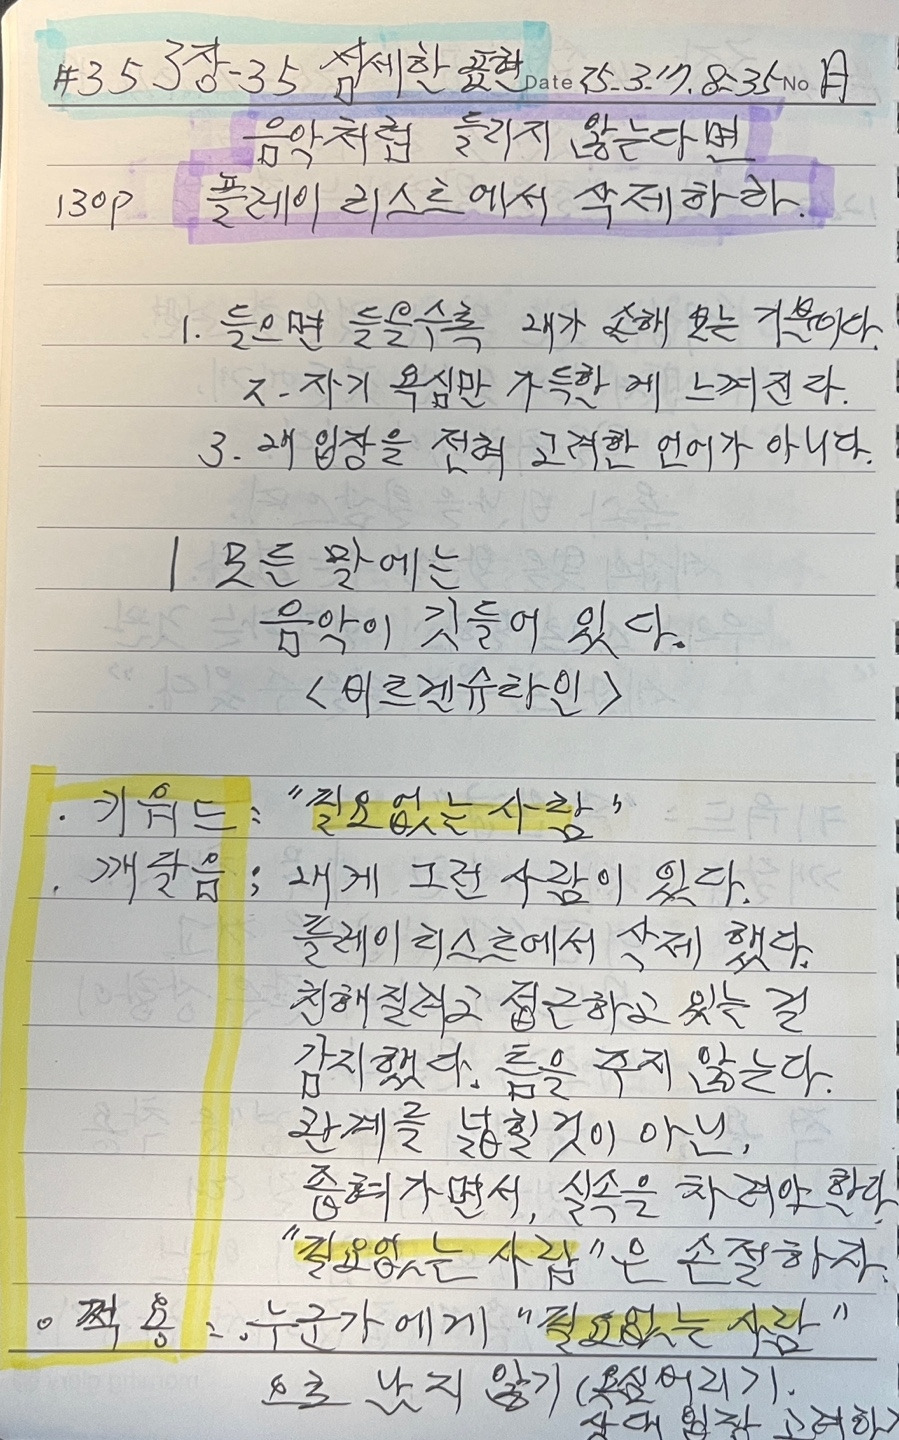 #35 3장-35 섬세한 표현 Date 25-3-17. 8-35 No 月
음악처럼 들리지 않는다면
130P 플레이 리스트에서 삭제하라.
1. 들으면 들을수록 내가 손해 보는 기분이다.
2- 자기 욕심만 가득한 게 느껴진다.
3. 내 입장을 전혀 고려한 언어가 아니다.
모든 말에는
음악이 깃들어 있다.
<비르켄슈타인>
· 키워드 : "필요없는 사람"
· 깨달음 : 내게 그런 사람이 있다.
플레이 리스트에서 삭제 했다.
친해질려고 접근하고 있는 걸
감지했다. 틈을 주지 않는다.
관계를 넓힐것이 아닌,
좁혀가면서, 실속을 차려야 한다
"필요없는 사람"은 손절하자.
· 적용 : 누군가에게 "필요없는 사람"
으로 남지 않기 (욕심버리기.
상대 입장 고려하기